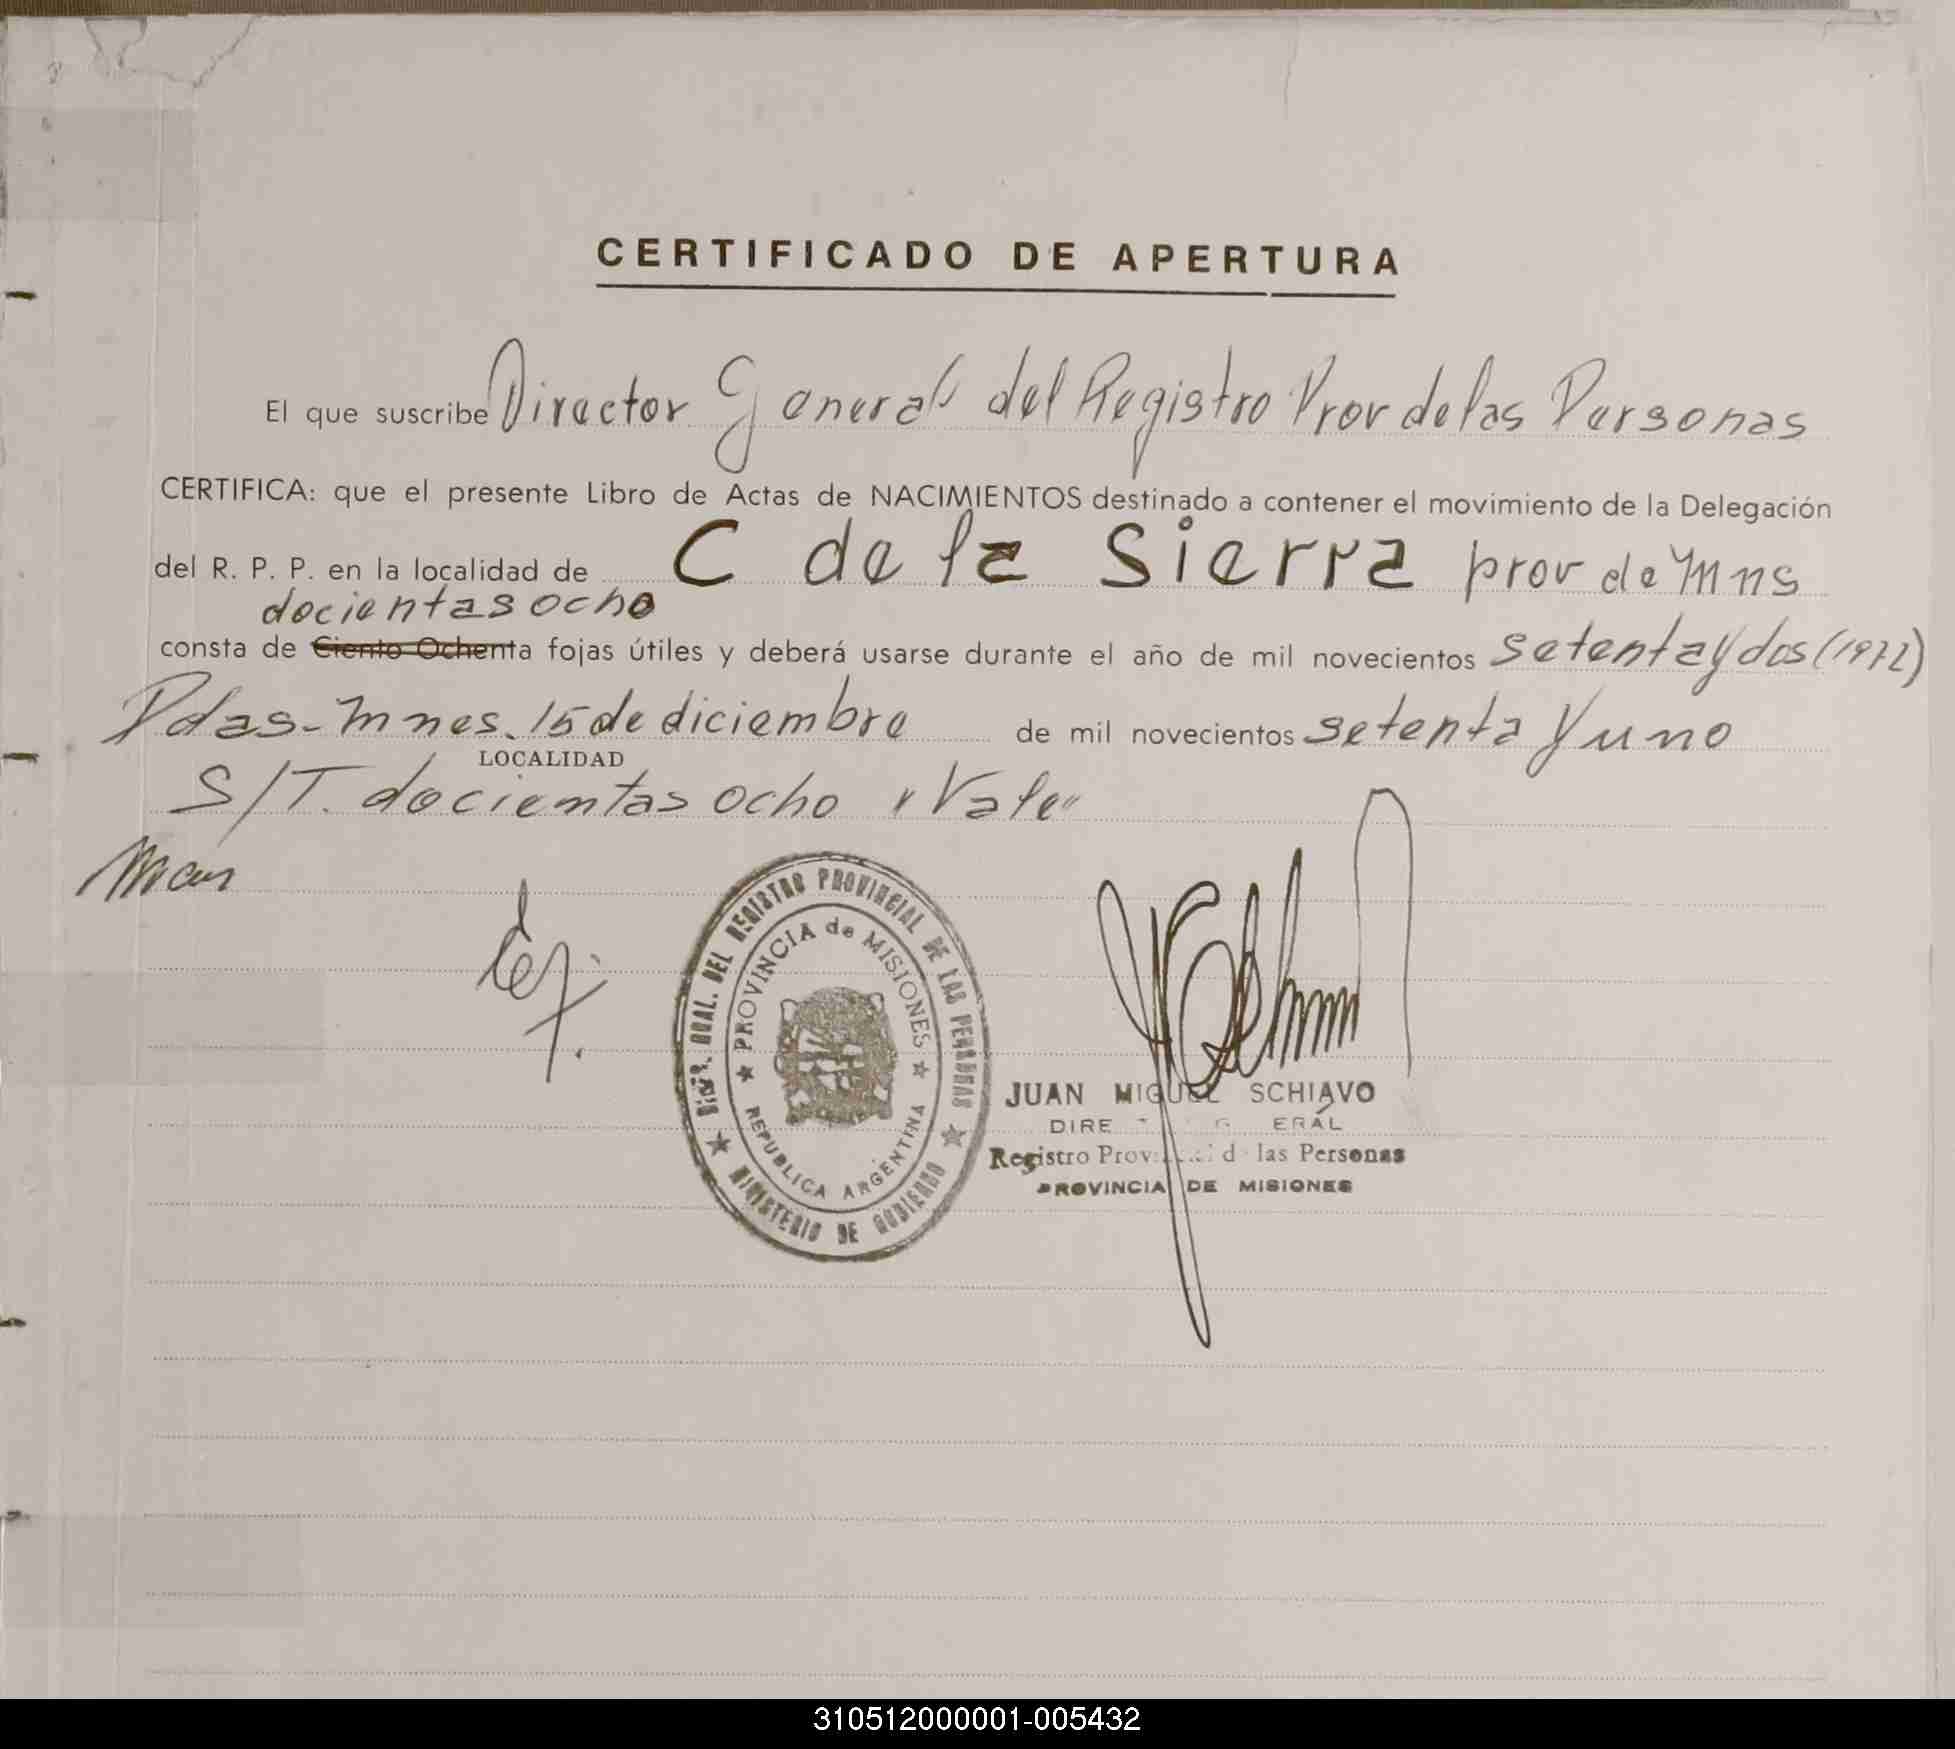 CERTIFICADO DE APERTURA
El que suscribe Director General del Registro Prov de las Personas
CERTIFICA: que el presente Libro de Actas de NACIMIENTOS destinado a contener el movimiento de la Delegación
del R. P. P. en la localidad de C de la Sierra prov de Mns
docientas ocho
consta de Ciento Ochenta fojas útiles y deberá usarse durante el año de mil novecientos setenta y dos (1972)
Pdas-Mnes. 15 de diciembre de mil novecientos setenta y uno
LOCALIDAD
S/T. docientas ocho "Vale"
DEL REGISTRO PROVINCIAL DE LAS PERSONAS
MINISTERIO DE GOBIERNO
PROVINCIA de MISIONES
REPUBLICA ARGENTINA
JUAN MIGUEL SCHIAVO
Registro Prov las Personas
PROVINCIA DE MISIONES
310512000001-005432